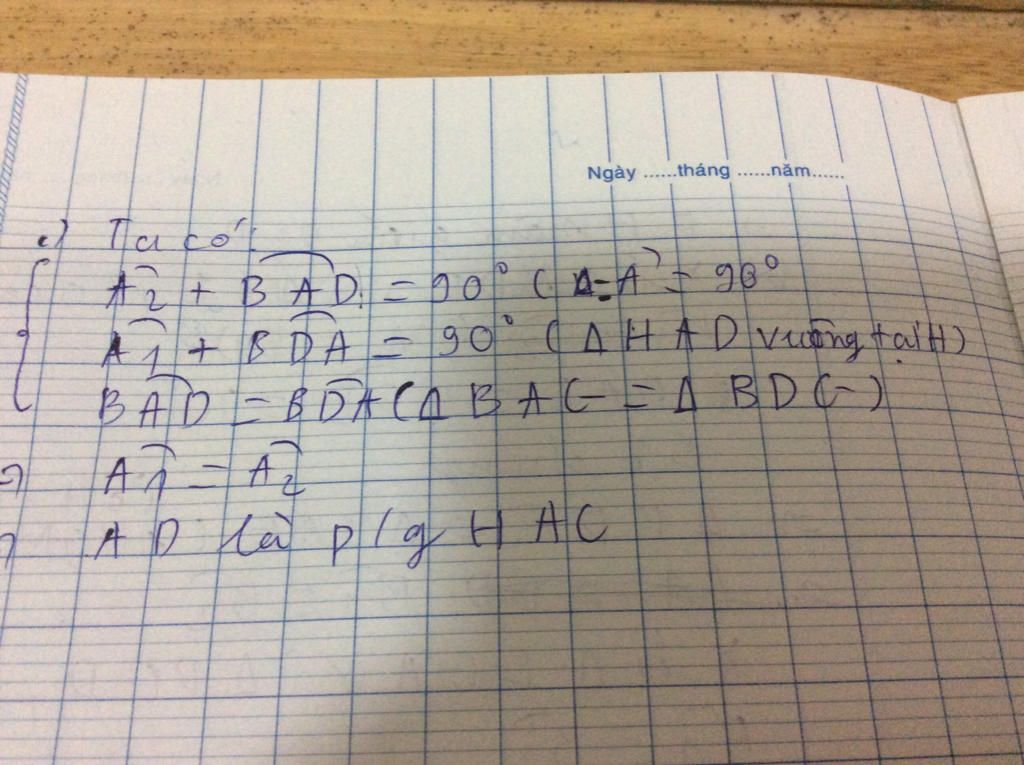 Ngày ......tháng ......năm......
c) Ta có:
A2 + BAD = 90° ( A = 90°
A1 + BDA = 90° ( Δ HAD vuông tại H)
BAD = BDA ( Δ BAC = Δ BDC )
⇒ A1 = A2
⇒ AD là p/g HAC